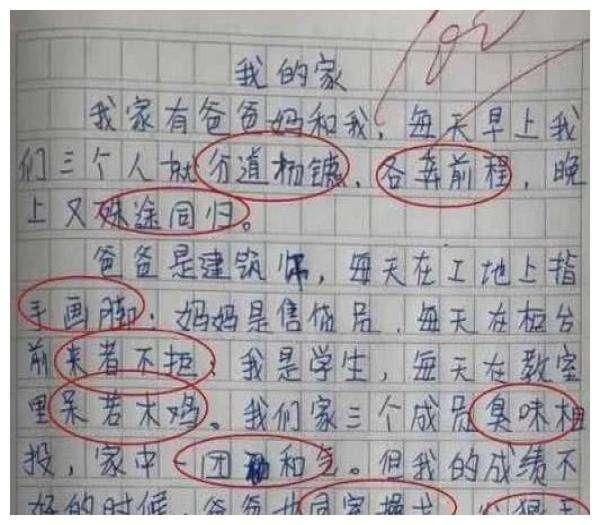 100
我的家
我家有爸爸妈和我，每天早上我
们三个人就分道杨镳、各奔前程，晚
上又殊途同归。
爸爸是建筑师，每天在工地上指
手画脚；妈妈是售货员，每天在柜台
前来者不拒；我是学生，每天在教室
里呆若木鸡。我们家三个成员臭味相
投，家中一团和气。但我的成绩不
好的时候，爸爸也同室操戈，心狠手